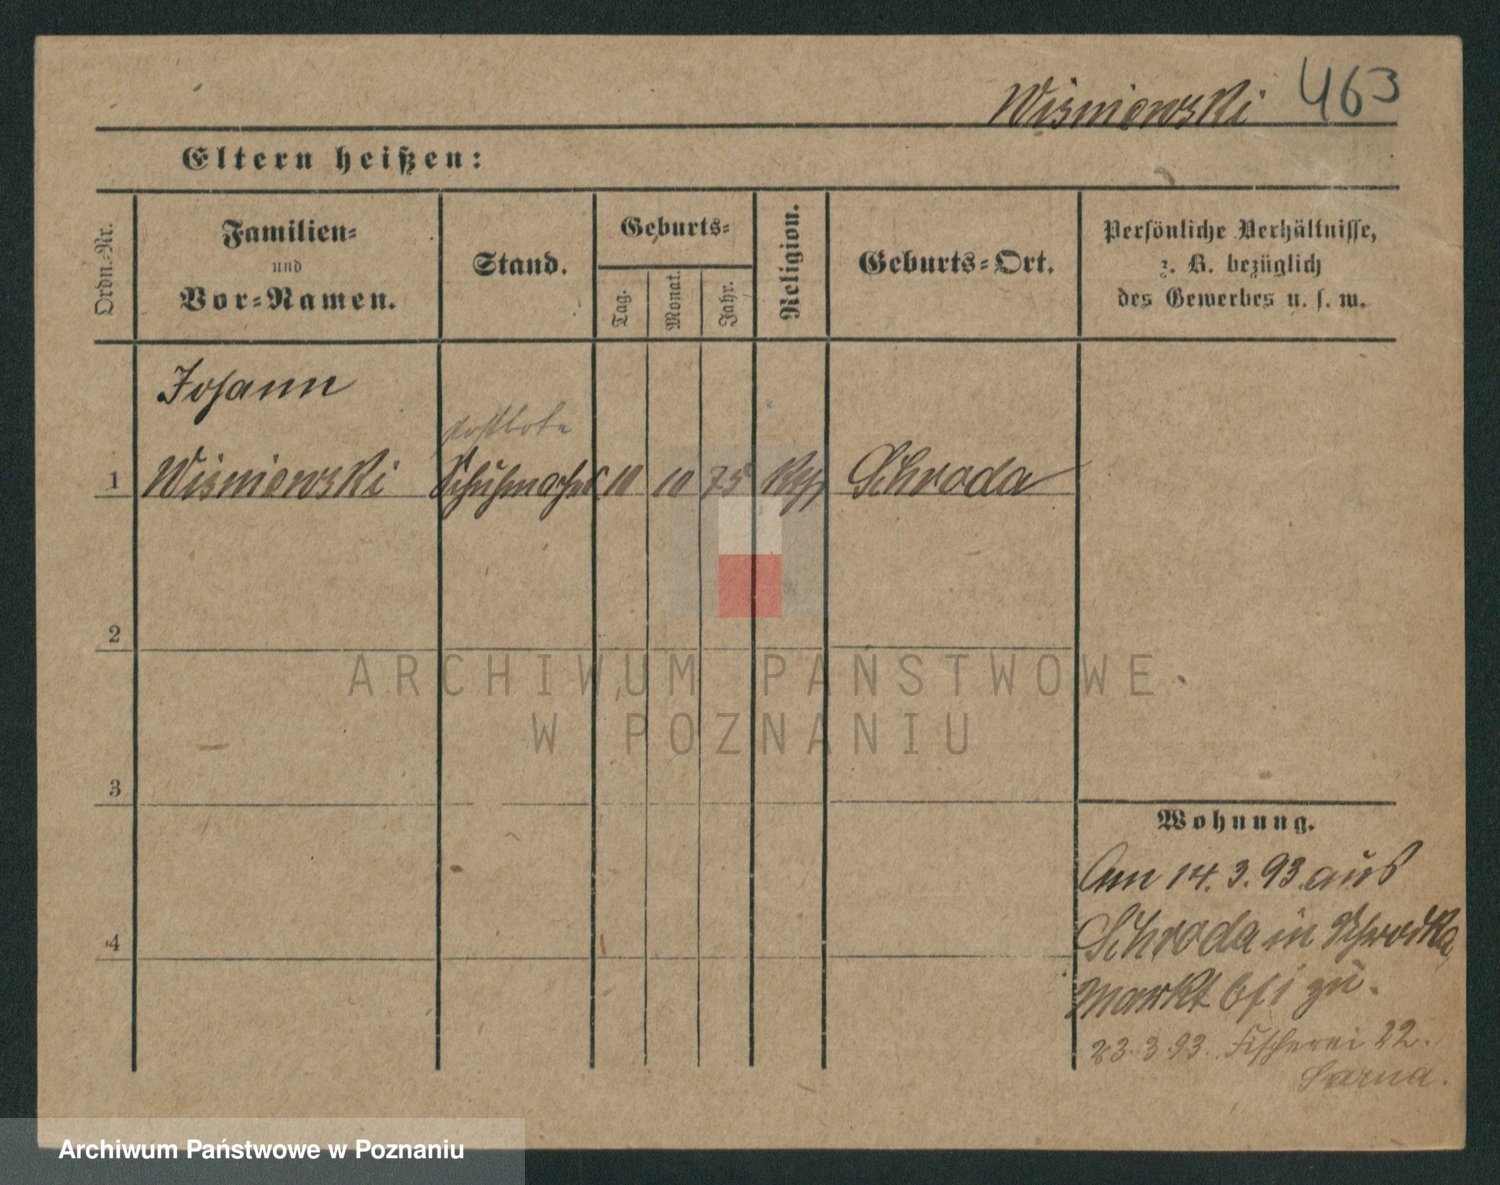 Wisniewski 463
Eltern heißen:
Ordn.-Nr.
Familien-
und
Vor-Namen.
Stand.
Geburts-
Tag.
Monat.
Jahr.
Religion.
Geburts-Ort.
Persönliche Verhältnisse,
z. B. bezüglich
des Gewerbes u. s. w.
Johann
Postbote
1 Wisniewski Schuhmacher 10 10 75 Schroda
2
3
4
Wohnung.
Am 14. 3. 93 aus
Schroda in
Markt bei zu.
23. 3. 93. Fischerei 22.
ARCHIWUM PAŃSTWOWE
W POZNANIU
Archiwum Państwowe w Poznaniu